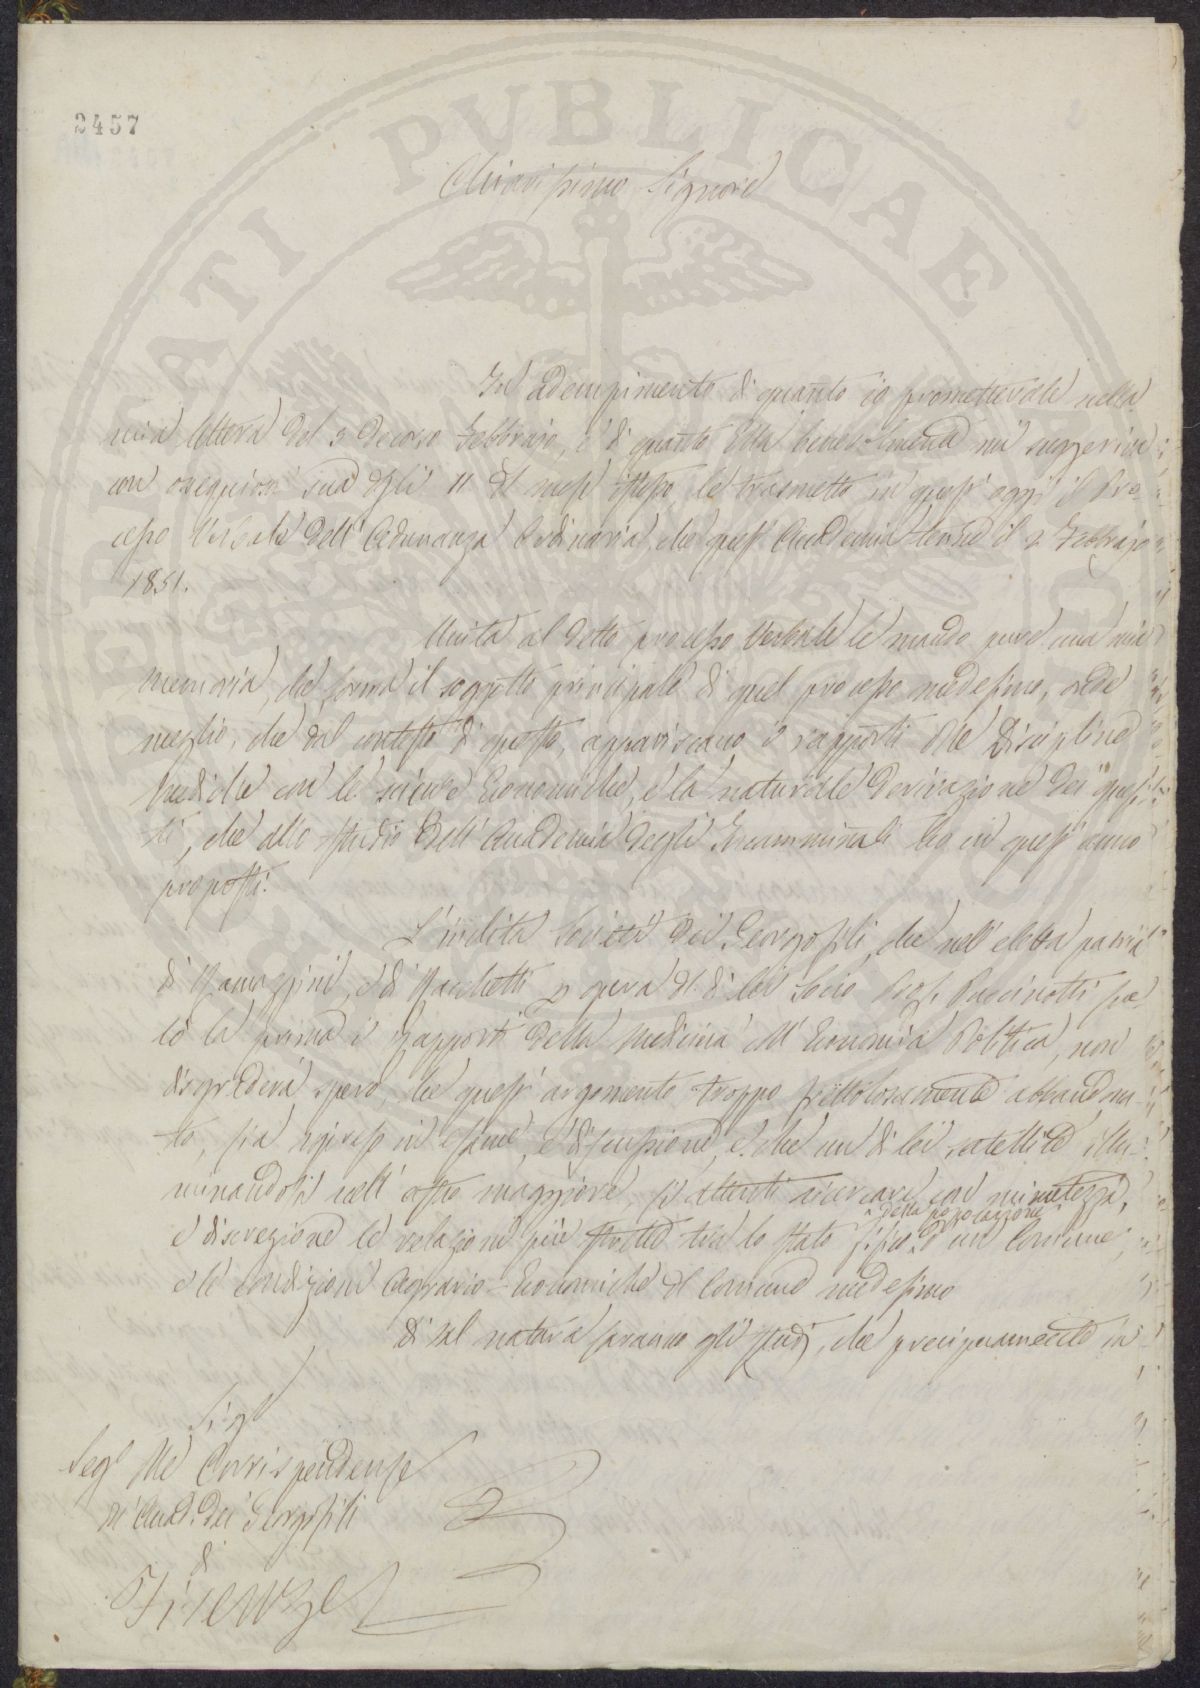 2457
Chiarissimo Signore
In adempimento di quanto io promettevale nella
mia lettera del 5 decorso Febbrajo, e di quanto Ella benevolmente mi suggeriva
con ossequiosa sua degli 11 del mese istesso, le trasmetto in quest'oggi il Pro-
cesso Verbale dell'Adunanza Ordinaria, che quest'Accademia tenne il 2 Febbrajo
1851.
Unita al detto processo Verbale le mando pure una mia
memoria, che forma il soggetto principale di quel processo medesimo, onde
meglio, che dal contesto di questo, appariscano i rapporti delle Discipline
Mediche con le scienze Economiche, e la naturale derivazione dei quesi-
ti, che allo studio dell'Accademia degli Incamminati ho in quest'anno
proposti.
L'inclita Società dei Georgofili, che nell'eletta patria
di Nannoni, e di per opera del di lei Socio Prof. Puccinotti sve-
lò la prima i Rapporti della Medicina coll'Economia Politica, non
disgraderà spero, che quest'argomento troppo frettolosamente abbandona-
to, sia ripreso in esame, e discussione, e che un di lei satellite illu-
minandosi nell'astro maggiore, si attenti ricercare con minutezza,
della popolazione
e discrezione le relazioni più strette tra lo stato fisico di un Comune
e le condizioni Agrario-Economiche del Comune medesimo
Di tal natura saranno gli studj, che precipuamente in
Sigr
Segr delle Corrispondenze
dell'Accad. dei Georgofili
di
Firenze
PERICULOSAE PUBLICAE